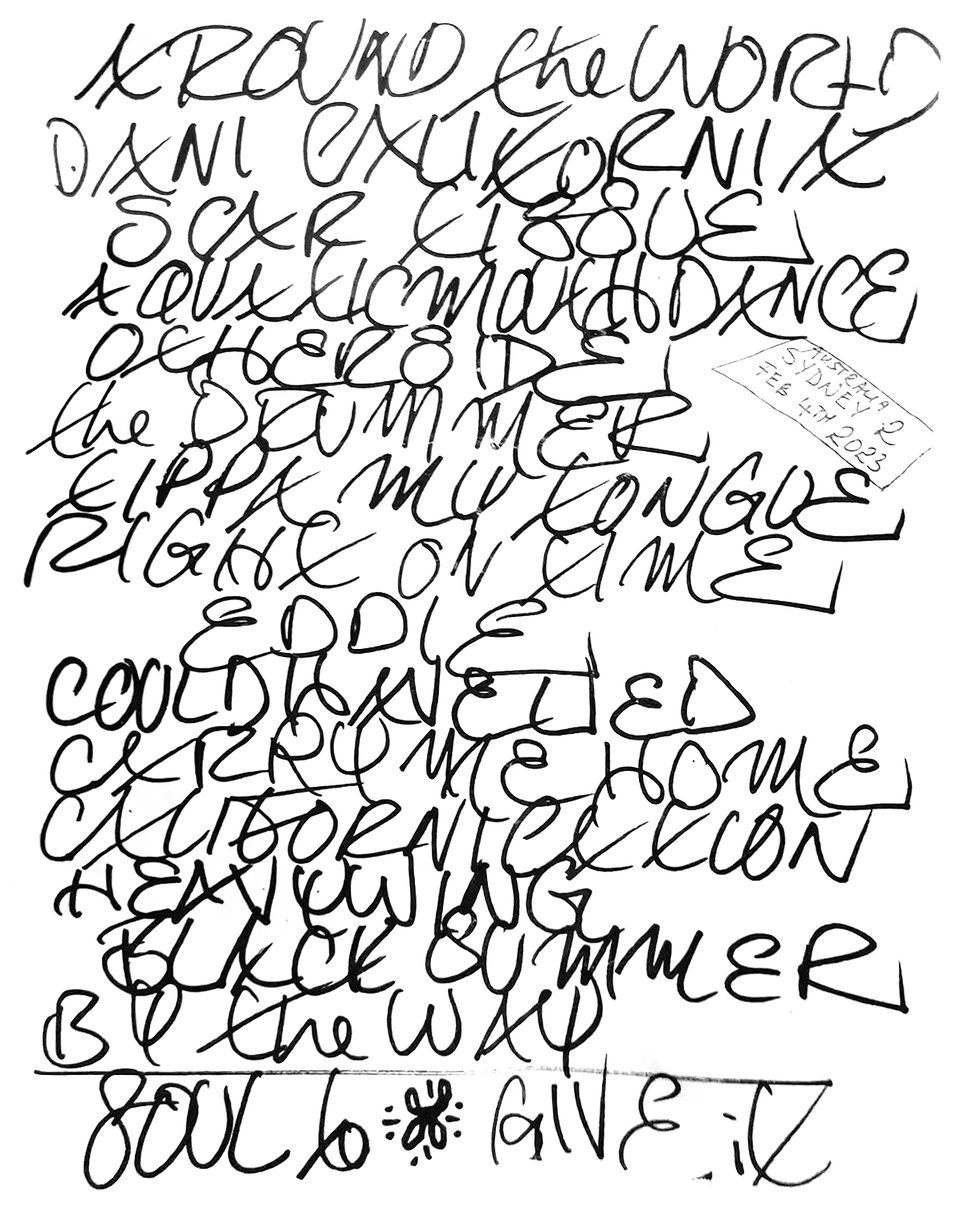 AROUND the WORLD
DANI CALIFORNIA
SCAR TISSUE
AQUATIC MOUTH DANCE
OTHERSIDE
AUSTRALIA
SYDNEY 2
FEB 4TH 2023
the DRUMMER
TIPPA MY TONGUE
RIGHT ON TIME
EDDIE
COULD HAVE LIED
CARRY ME HOME
CALIFORNICATION
HEAVY WING
BLACK SUMMER
BY the WAY
SOUL to GIVE iT